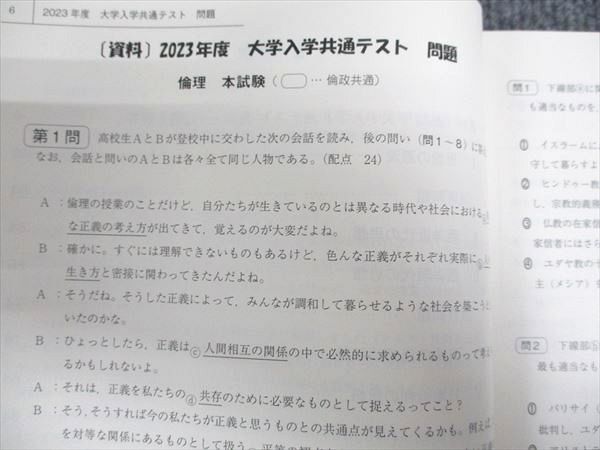 6
2023年度 大学入学共通テスト 問題
〔資料〕2023年度 大学入学共通テスト 問題
倫理 本試験( … 倫政共通)
第1問 高校生AとBが登校中に交わした次の会話を読み，後の問い(問1～8)に
なお，会話と問いのAとBは各々全て同じ人物である。(配点 24)
A：倫理の授業のことだけど，自分たちが生きているのとは異なる時代や社会における
な正義の考え方が出てきて，覚えるのが大変だよね。
B：確かに。すぐには理解できないものもあるけど，色んな正義がそれぞれ実際に
生き方と密接に関わってきたんだよね。
A：そうだね。そうした正義によって，みんなが調和して暮らせるような社会を築こう
いたのかな。
B：ひょっとしたら，正義はⓒ人間相互の関係の中で必然的に求められるものって考
るかもしれないよ。
A：それは，正義を私たちのⓓ共存のために必要なものとして捉えるってこと？
B：そう，そうすれば今の私たちが正義と思うものとの共通点が見えてくるかも。例えば
を対等な関係にあるものとして扱う
問1 下線部ⓐに関
も適当なものを，
① イスラームに
守して暮らすよ
② ヒンドゥー教
し，宗教的義務
③ 仏教の在家信
家信者にはさら
④ ユダヤ教のそ
主（メシア）を
問2 下線部ⓑ
最も適当なも
① パリサイ（
批判し，ユダ